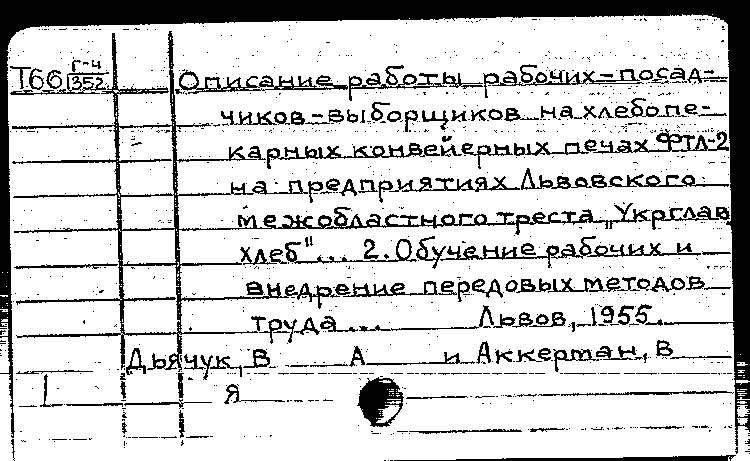 Т66 г-4 352 Описание работы рабочих-посад-
чиков-выборщиков на хлебопе-
карных конвейерных печах ФТЛ-2
на предприятиях Львовского
межобластного треста „Укрглав
хлеб"... 2. Обучение рабочих и
внедрение передовых методов
труда... Львов, 1955.
Дьячук, В А и Аккерман, В
Я